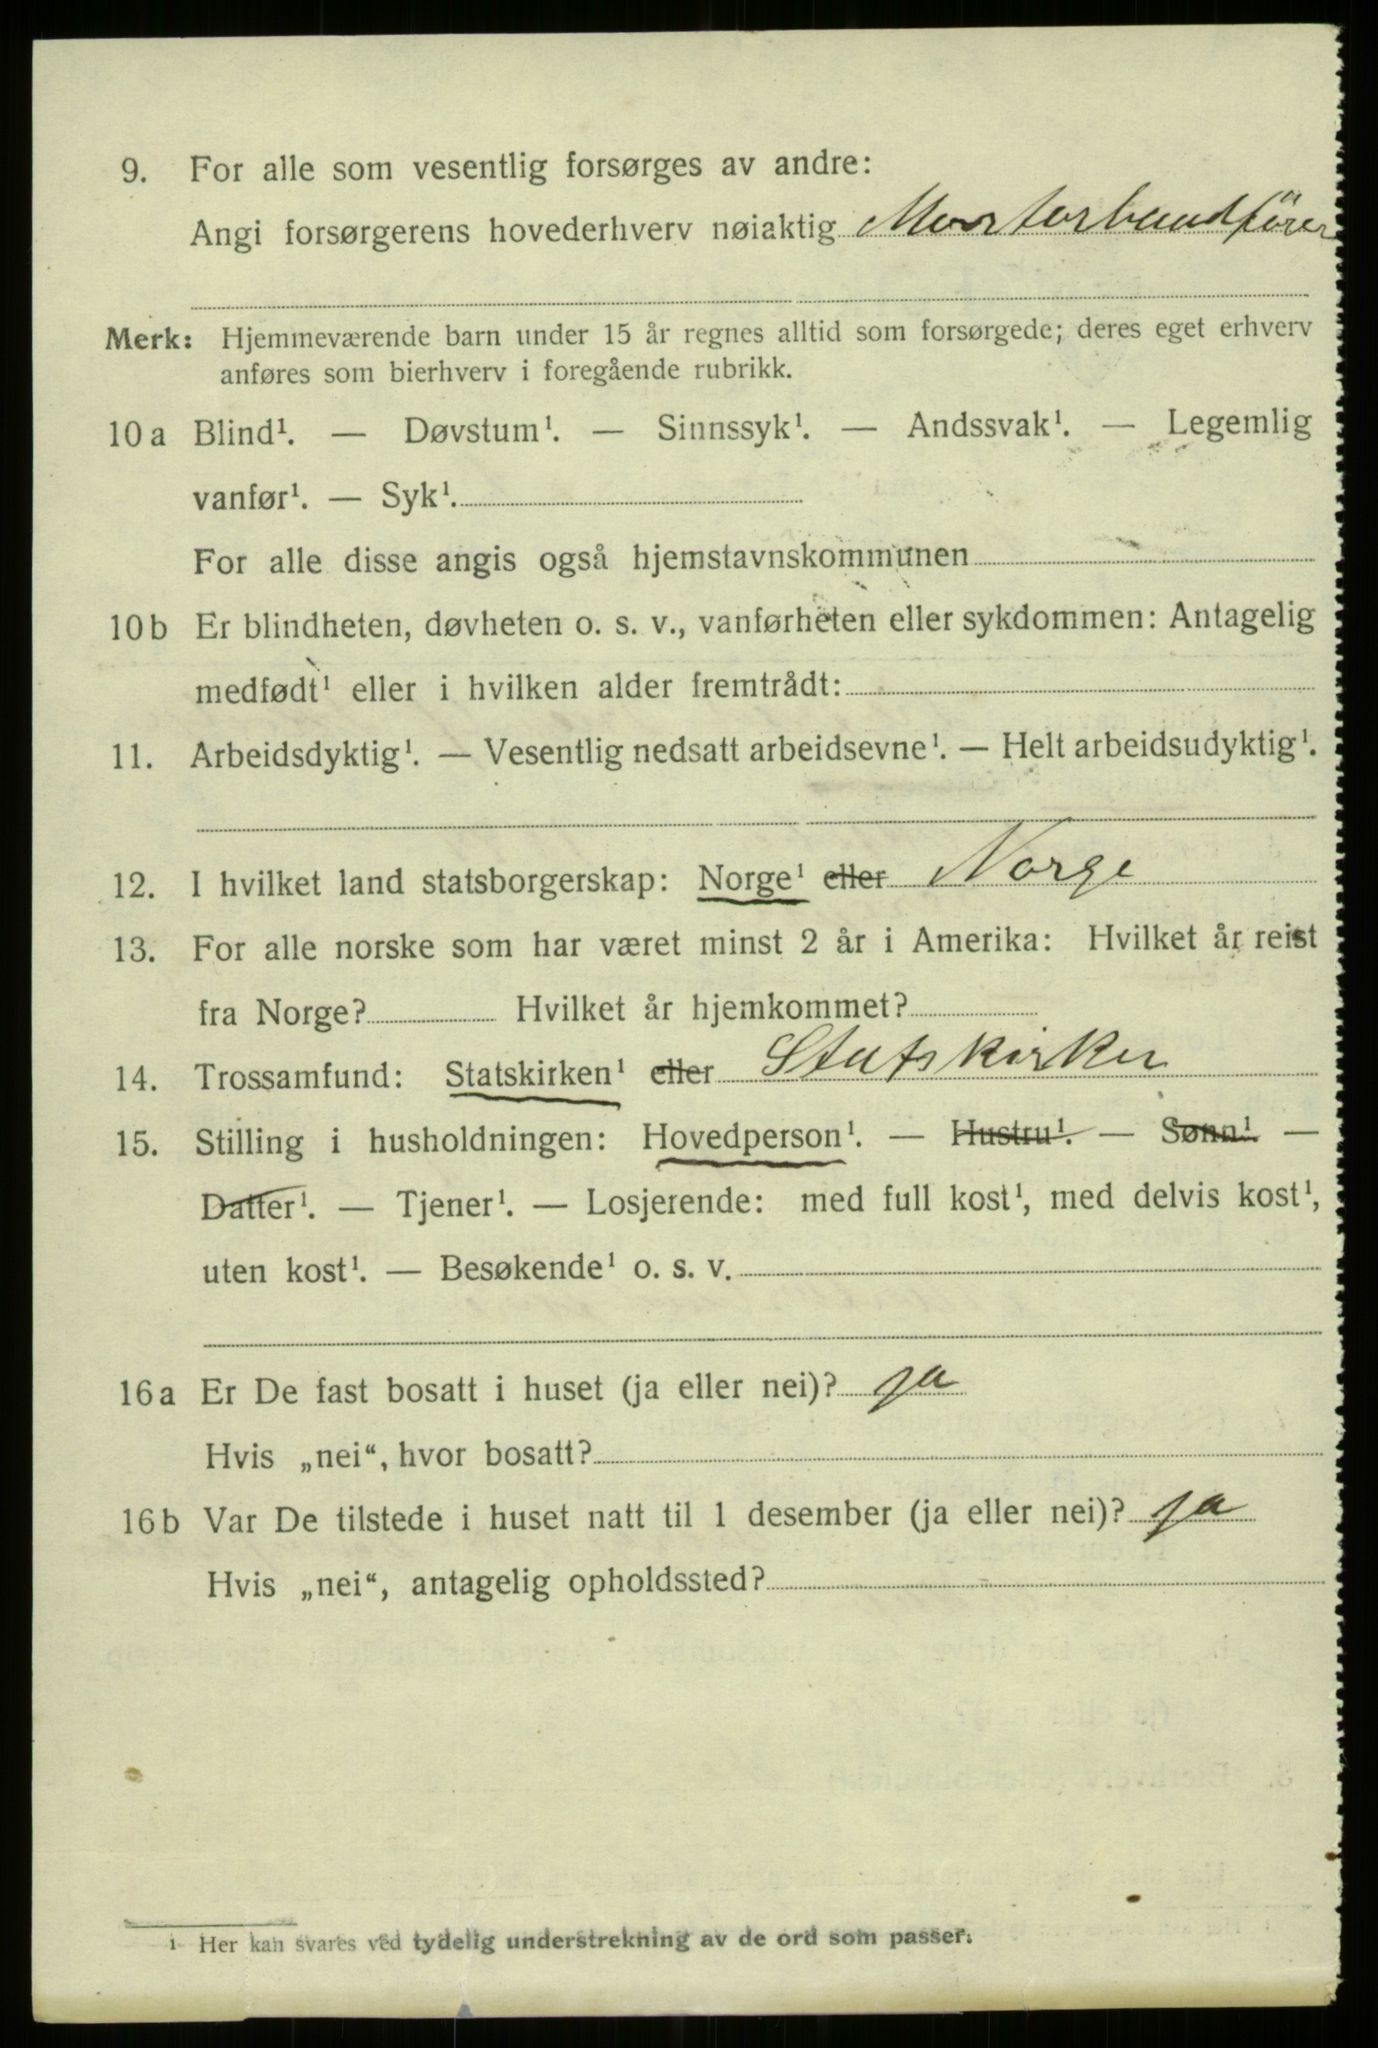 9. For alle som vesentlig forsørges av andre:
Angi forsørgerens hovederhverv nøiaktig
Merk: Hjemmeværende barn under 15 år regnes alltid som forsørgede; deres eget erhverv
anføres som bierhverv i foregående rubrikk.
10 a Blind¹. — Døvstum¹. — Sinnssyk¹. — Andssvak¹. — Legemlig
vanfør¹. — Syk¹.
For alle disse angis også hjemstavnskommunen
10 b Er blindheten, døvheten o. s. v., vanførheten eller sykdommen: Antagelig
medfødt¹ eller i hvilken alder fremtrådt:
11. Arbeidsdyktig¹. — Vesentlig nedsatt arbeidsevne¹. — Helt arbeidsudyktig¹.
12. I hvilket land statsborgerskap: Norge¹ eller Norge
13. For alle norske som har været minst 2 år i Amerika: Hvilket år reist
fra Norge? Hvilket år hjemkommet?
14. Trossamfund: Statskirken¹ eller Statskirken
15. Stilling i husholdningen: Hovedperson¹. — Hustru¹. — Sønn¹. —
Datter¹. — Tjener¹. — Losjerende: med full kost¹, med delvis kost¹,
uten kost¹. — Besøkende¹ o. s. v.
16 a Er De fast bosatt i huset (ja eller nei)? ja
Hvis „nei“, hvor bosatt?
16 b Var De tilstede i huset natt til 1 desember (ja eller nei)? ja
Hvis „nei“, antagelig opholdssted?
¹ Her kan svares ved tydelig understrekning av de ord som passer.